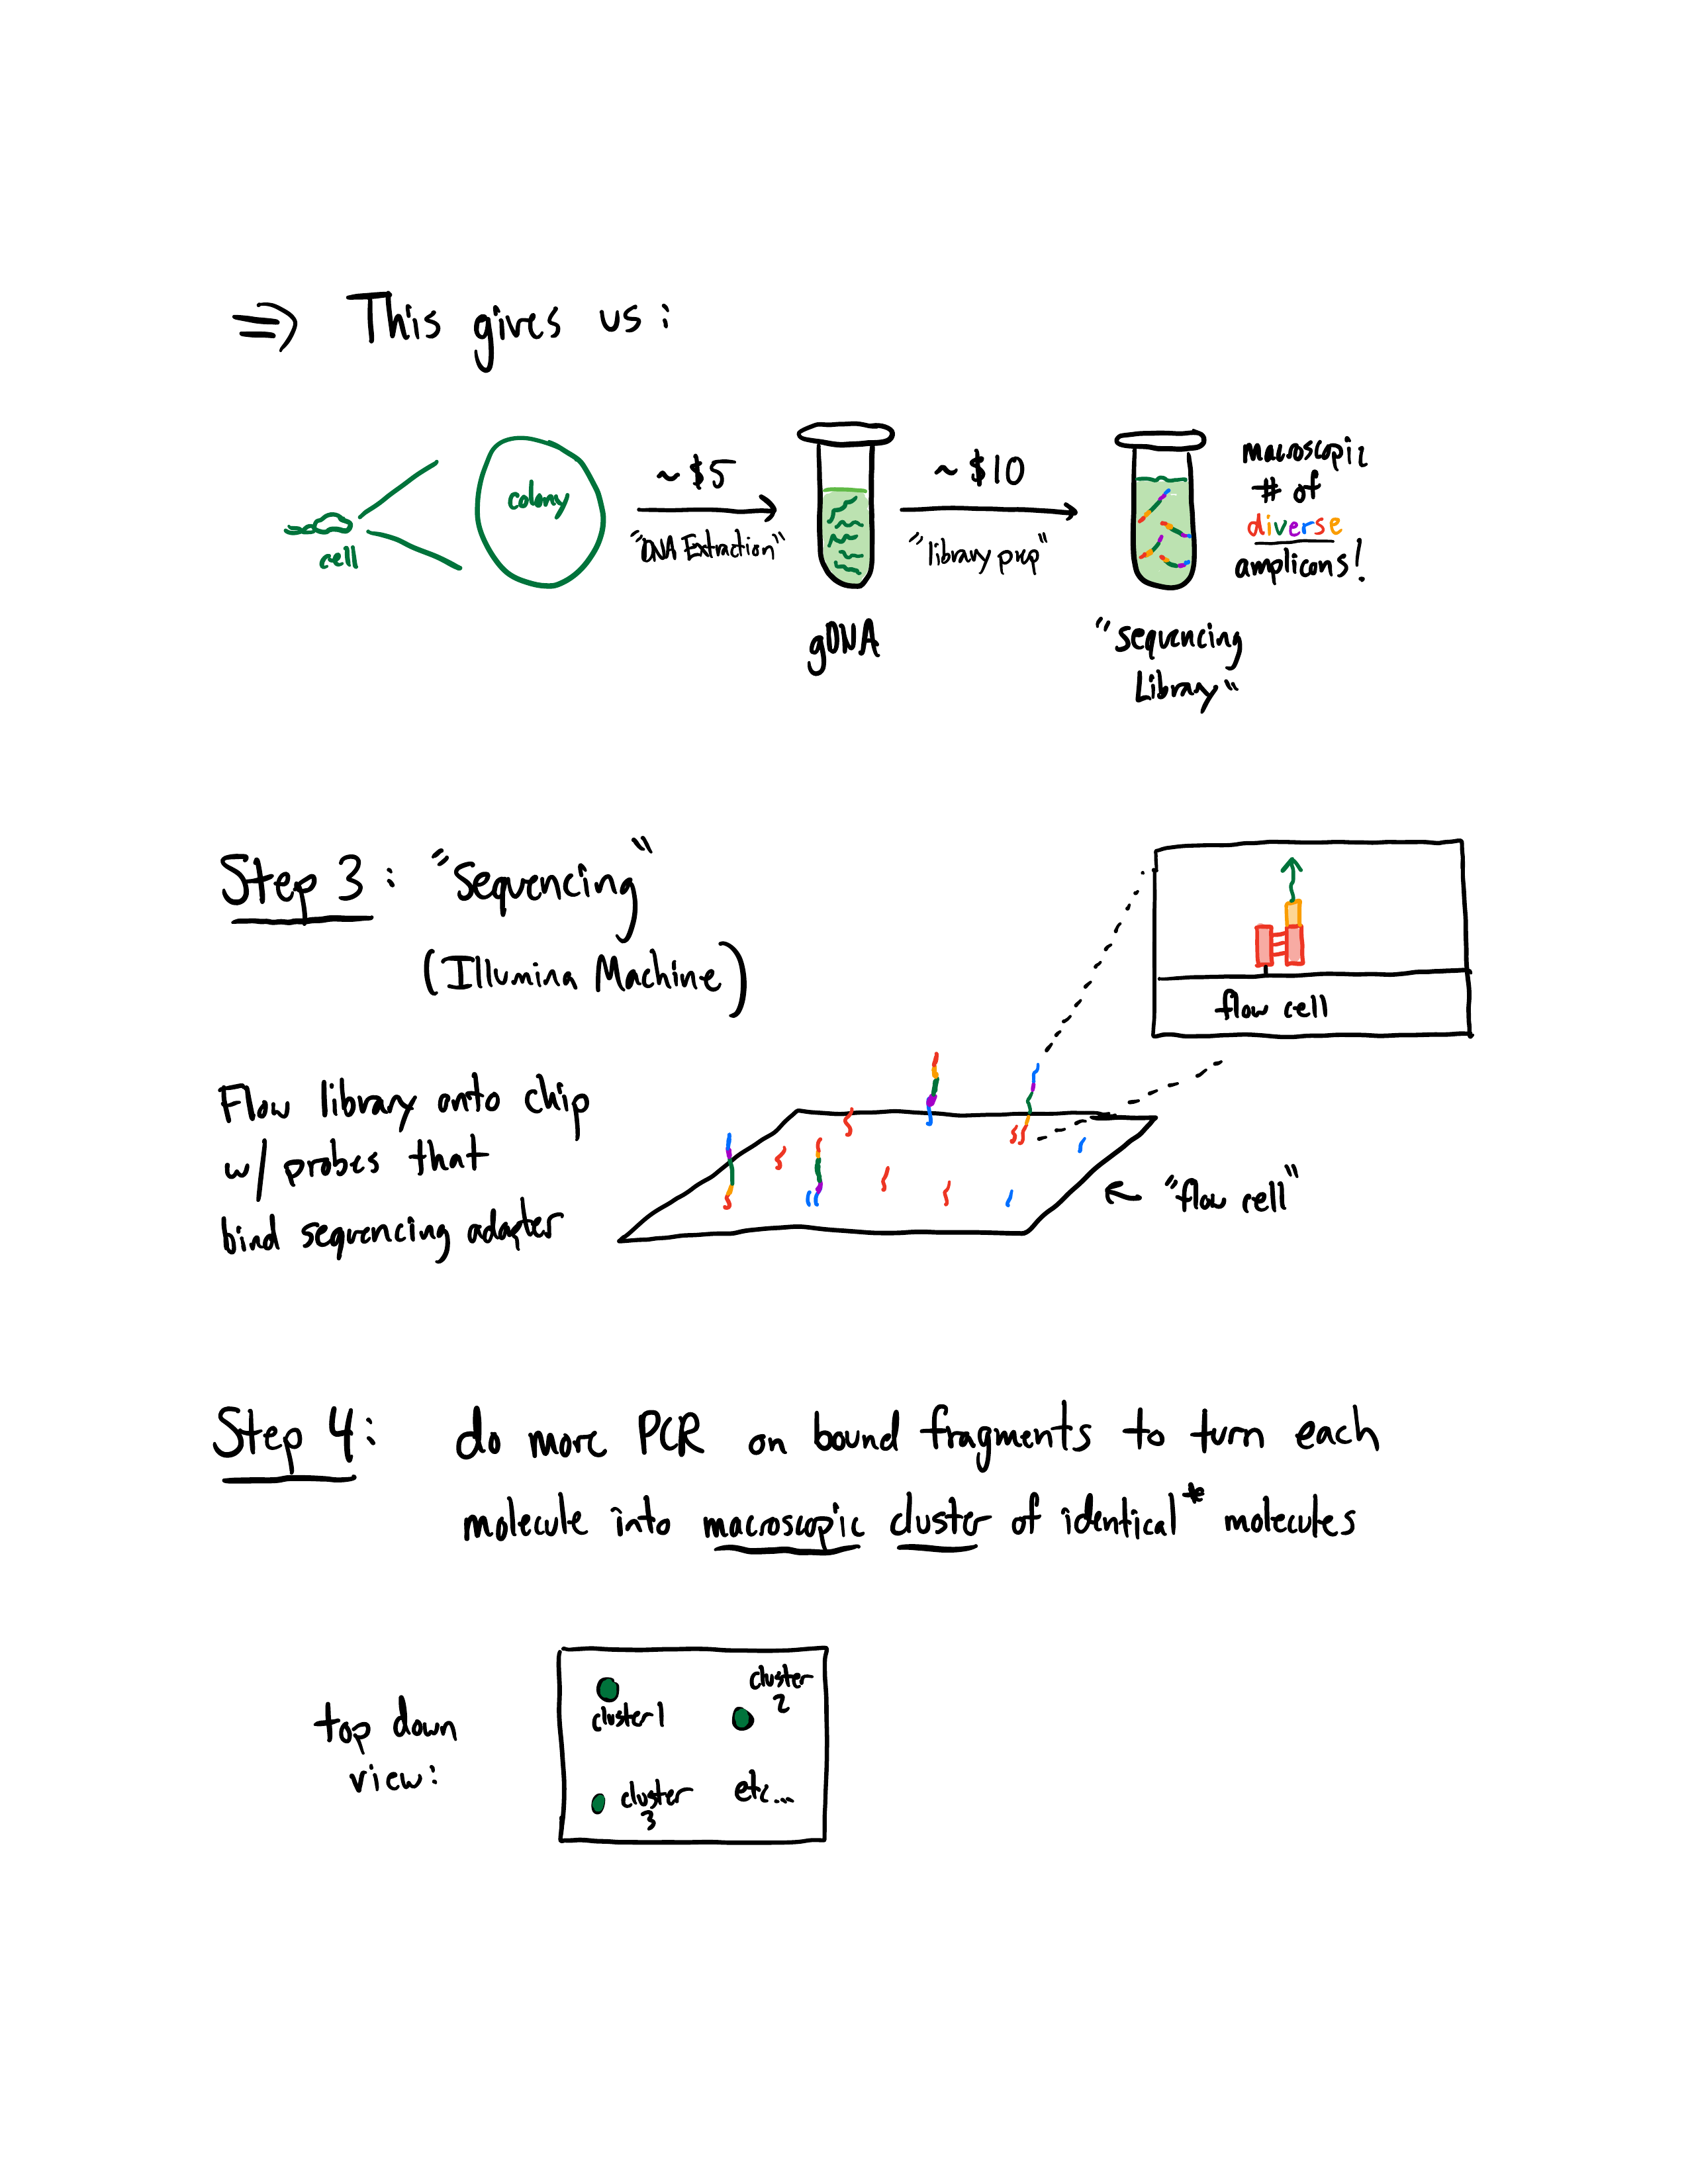 ⇒ This gives us:
cell
colony
~$5
"DNA Extraction"
gDNA
~$10
"library prep"
"sequencing
Library"
macroscopic
# of
diverse
amplicons!
Step 3: "Sequencing"
(Illumina Machine)
flow cell
Flow library onto chip
w/ probes that
bind sequencing adapter
"flow cell"
Step 4: do more PCR on bound fragments to turn each
molecule into macroscopic cluster of identical* molecules
top down
view:
cluster 1
cluster
2
cluster
3
etc...